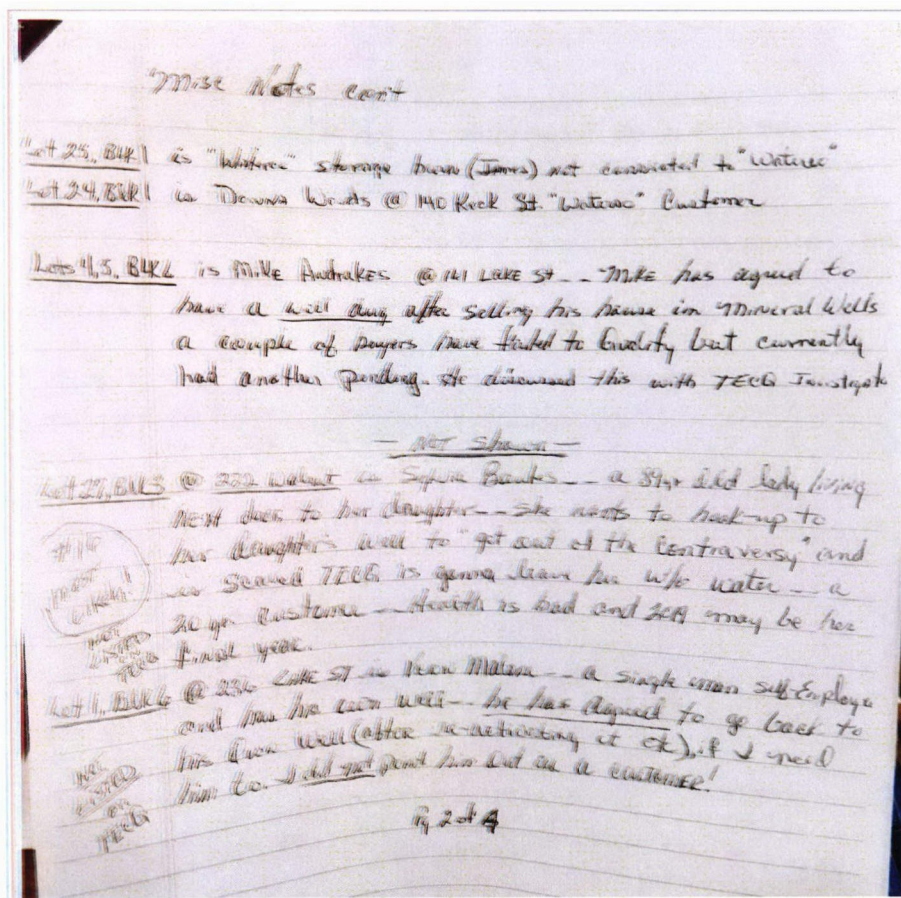 "Misc Notes con't
Lot 25, BLK 1 is " " storage barn (James) not connected to "Waterco"
Lot 24, BLK 1 is Donna Woods @ 140 Rock St. "Waterco" Customer
Lots 4,5, BLK 2 is Mike @ 141 LAKE St -- Mike has agreed to
have a well dug after selling his house in Mineral Wells
a couple of buyers have failed to Qualify but currently
had another pending. He discussed this with TECQ
- NOT Shown -
Lot 27, BLK 3 @ 222 Walnut is Banks -- a 89yr old lady living
NEXT door to her daughter -- she wants to hook-up to
her daughter's well to "get out of the Contraversy" and
is scared TECQ is gonna leave her w/o water -- a
20 yr. Customer -- Health is bad and 2019 may be her
final year.
#16
most
NOT
LISTED
TECQ
Lot 1, BLK 6 @ 236 LAKE ST is -- a single man self-Employe
and has his own well -- he has agreed to go back to
his own well (after re-activating it ok), if I need
him to. I did not point him out as a CUSTOMER!
NOT
LISTED
on
TECQ
Pg 2 of 4